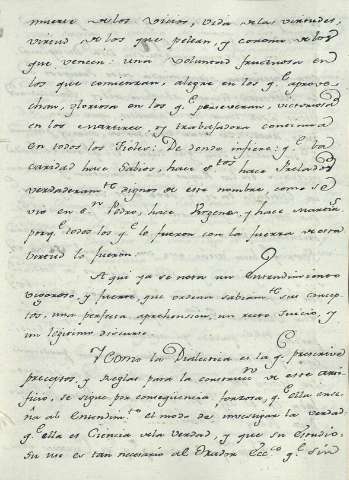 muerte de los vicios, vida de las virtudes,
virtud de los que pelean, y corona de los
que vencen: una voluntad fructuosa en
los que comienzan, alegre en los q.e aprove-
chan, gloriosa en los q.e perseveran, victoriosa
en los martires, y trabajadora continua
en todos los Fieles: De donde infiere: q.e la
caridad hace Sabios, hace S.tos hace Prelados
verdaderam.te dignos de este nombre, como se
vio en S.n Pedro, hace Virgenes, y hace Martires
porq.e todos los q.e lo fueron con la fuerza de esta
virtud lo fueron.
Aqui ya se nota un Entendimiento
vigoroso, y fuerte, que ordena sabiam.te sus concep-
tos, una perfecta aprehension, un recto Juicio, y
un legitimo discurso.
Y como la Dialectica es la q.e prescrive
preceptos, y reglas para la construcc.n de este arti-
ficio, se sigue por consequencia forzosa, q.e ella ense-
ña al Entendim.to el modo de investigar la verdad,
q.e ella es Ciencia de la verdad, y que su Estudio,
su uso es tan necesario al Orador Ecc.co q.e sin